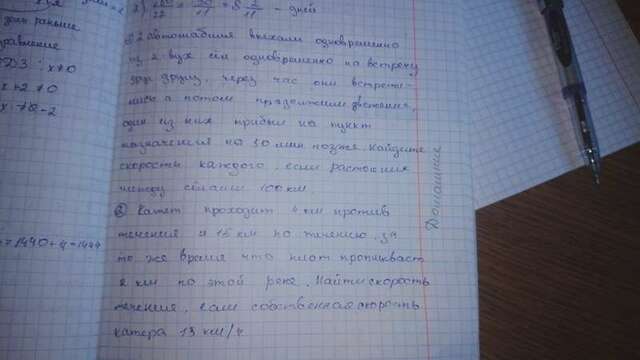 дом раньше
уравнение
ОДЗ: x≠0
x+2≠0
x≠-2
= 1440+4=1444
= 8 2/11 - дней
2 автомобиля выехали одновременно
из 2-вух сёл одновременно на встречу
друг другу, через час они встрети-
лись, а потом продолжили движение,
один из них прибыл на пункт
назначения на 50 мин позже. Найдите
скорость каждого, если растояние
между сёлами 100 км.
② Катет проходит 4 км против
течения и 15 км по течению, за
то же время что плот проплывает
2 км по этой реке. Найти скорость
течения, если собственная скорость
катера 13 км/ч
Домашняя